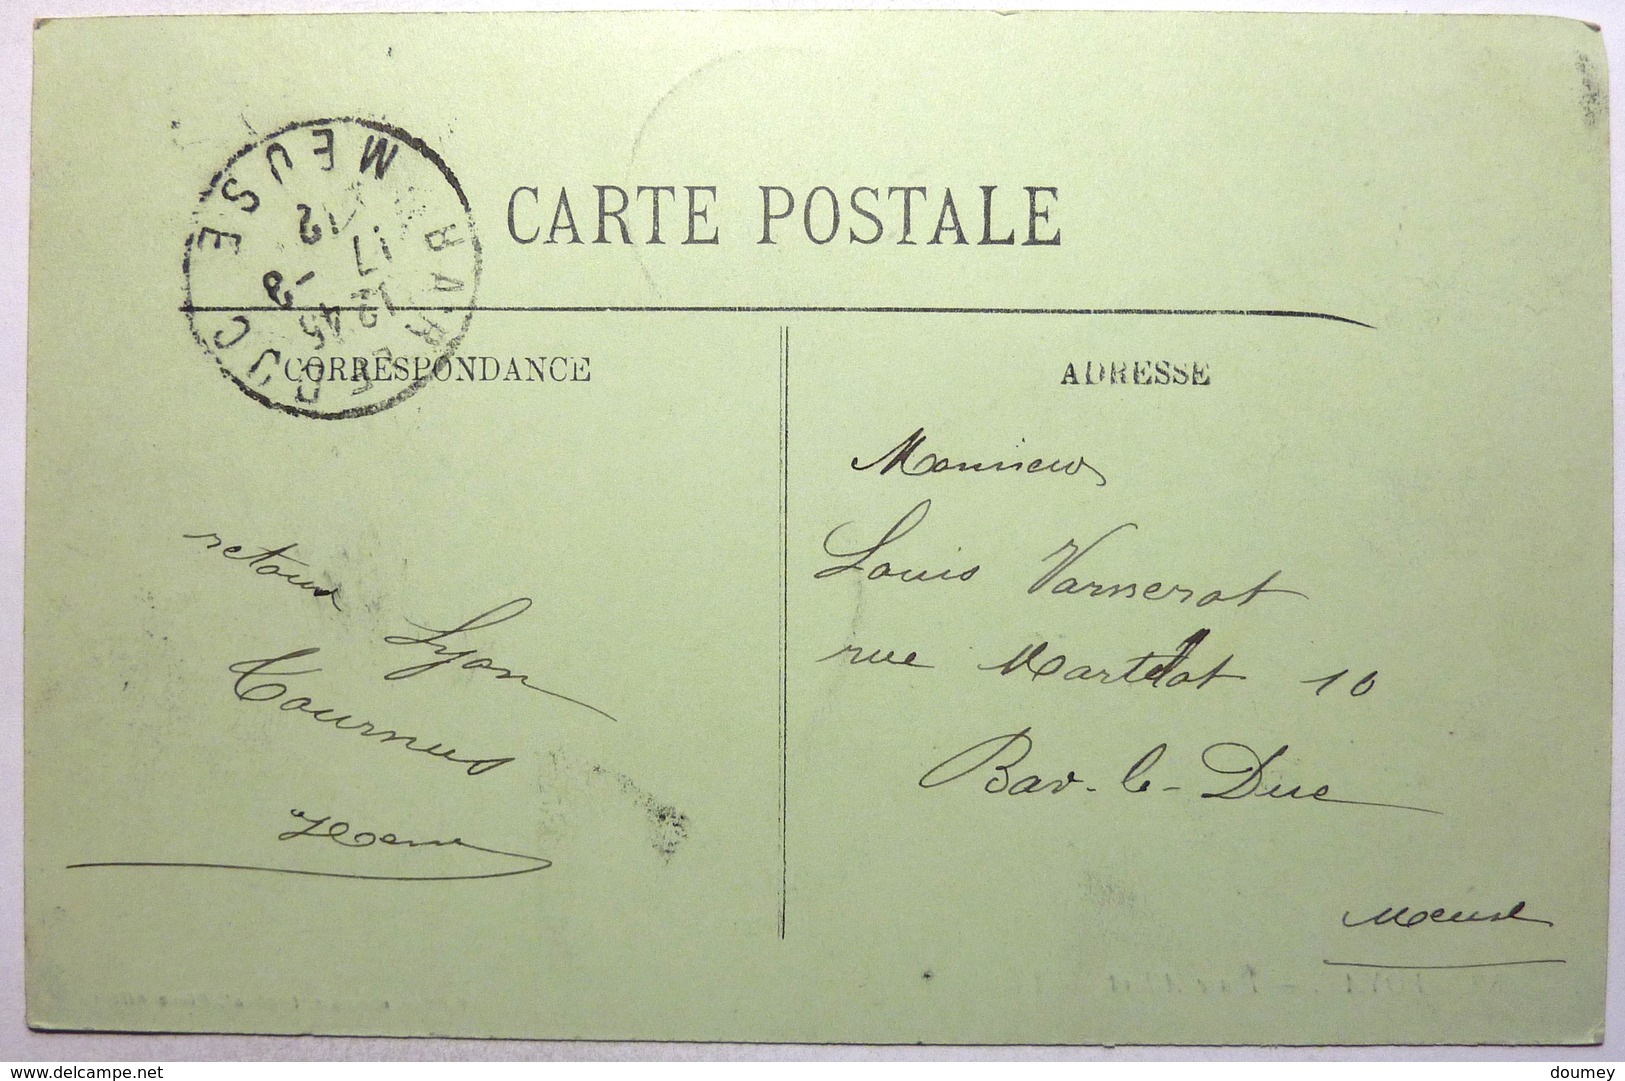 CARTE POSTALE
BAR-LE-DUC
MEUSE
12 45
17 -8
12
CORRESPONDANCE
ADRESSE
retour
Lyon
Tournus
Monsieur
Louis Varnerot
rue Martelot 10
Bar-le-Duc
Meuse
delcampe.net
doumey